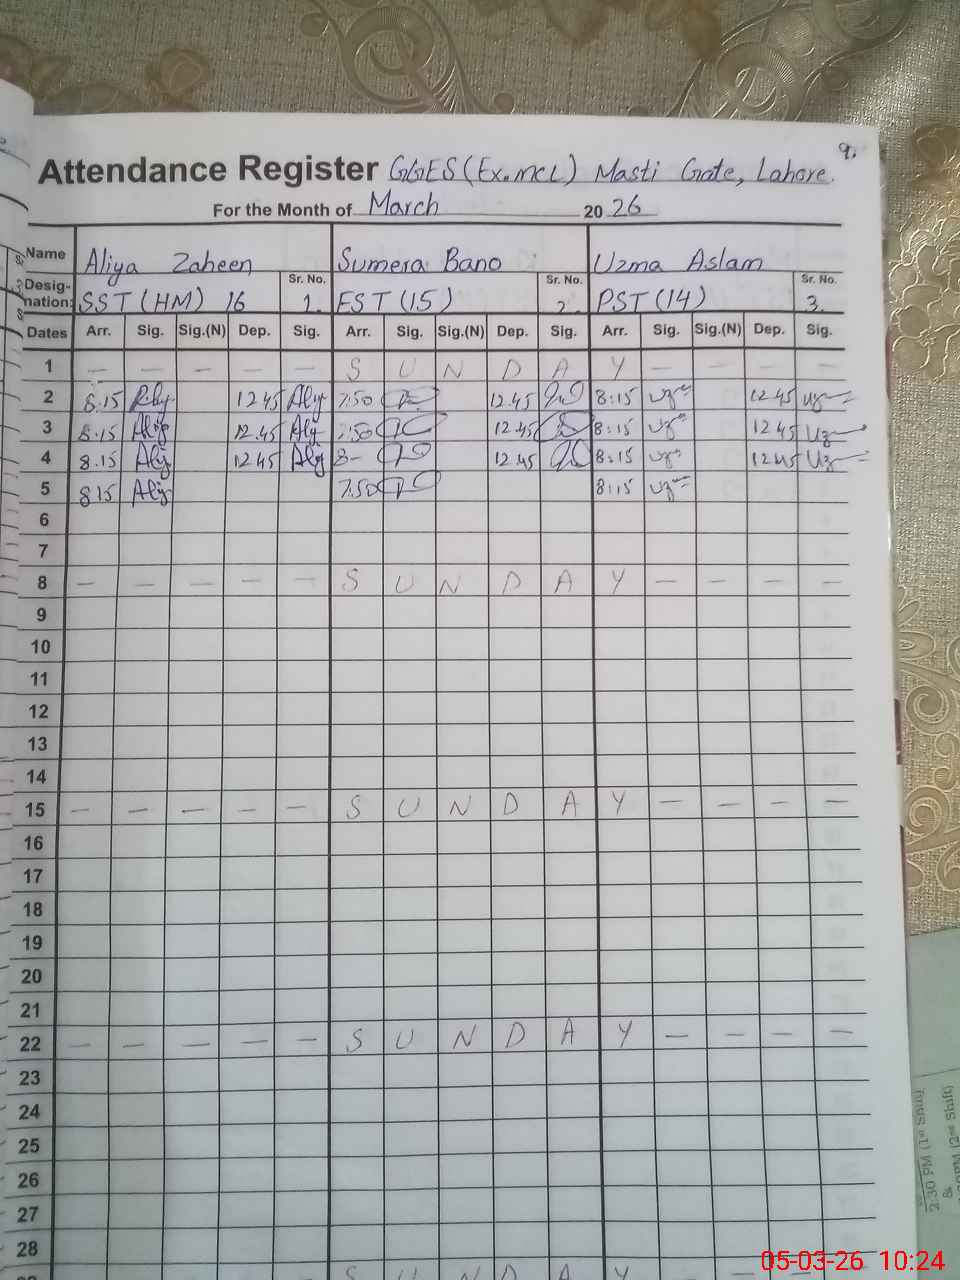 9.
Attendance Register GGES (Ex.MCL) Masti Gate, Lahore.
For the Month of March 2026
Name Aliya Zaheen Sumera Bano Uzma Aslam
Desig-nation: SST (HM) 16 Sr. No. 1. EST (15) Sr. No. 2. PST (14) Sr. No. 3.
Dates Arr. Sig. Sig.(N) Dep. Sig. Arr. Sig. Sig.(N) Dep. Sig. Arr. Sig. Sig.(N) Dep. Sig.
1 — — — — — S U N D A Y — — — —
2 8.15 Aly 12 45 Aly 7.50 12.45 8:15 uz 12 45 uz
3 8.15 Aly 12.45 Aly 7.50 12.45 8:15 uz 12 45 Uz
4 8.15 Aly 12.45 Aly 8- 12.45 8:15 uz 12 45 Uz
5 8 15 Aly 7.50 8:15 uz
6
7
8 — — — — — S U N D A Y — — — —
9
10
11
12
13
14
15 — — — — — S U N D A Y — — — —
16
17
18
19
20
21
22 — — — — — S U N D A Y — — — —
23
24
25
26
27
28
S U N D A Y
2:30 PM (1st Shift)
&
PM (2nd Shift)
05-03-26 10:24